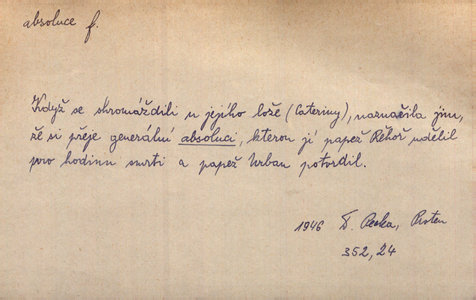 absoluce f.
Když se shromáždili u jejího lože (Cateriny), naznačila jim,
že si přeje generální absoluci, kterou jí papež Řehoř udělil
pro hodinu smrti a papež Urban potvrdil.
1946 D. Pecka,
352, 24